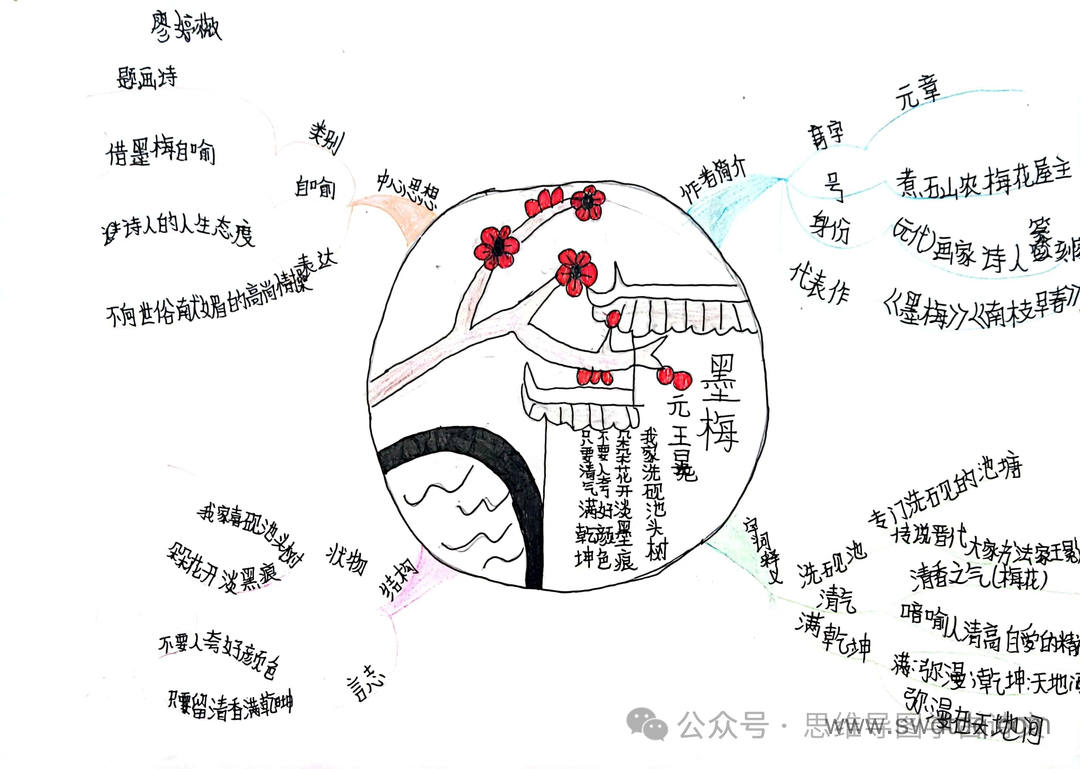 廖婷薇
题画诗
类别
借墨梅自喻
自喻
中心思想
诗人的人生态度
表达
不向世俗献媚的高尚情操
作者简介
字
元章
号
煮石山农 梅花屋主
身份
(元代)画家 诗人 篆刻
代表作
《墨梅》《南枝早春》
墨梅
元 王冕
我家洗砚池头树
朵朵花开淡墨痕
不要人夸好颜色
只要清气满乾坤
结构
状物
我家喜砚池头树
朵花开淡黑痕
言志
不要人夸好颜色
只要留清香满乾坤
字词释义
洗砚池
专门洗砚的池塘
传说晋代大家方法家王
清气
清香之气(梅花)
暗喻人清高自爱的精
满乾坤
满:弥漫;乾坤:天地间
弥漫在天地间
公众号·思维导图